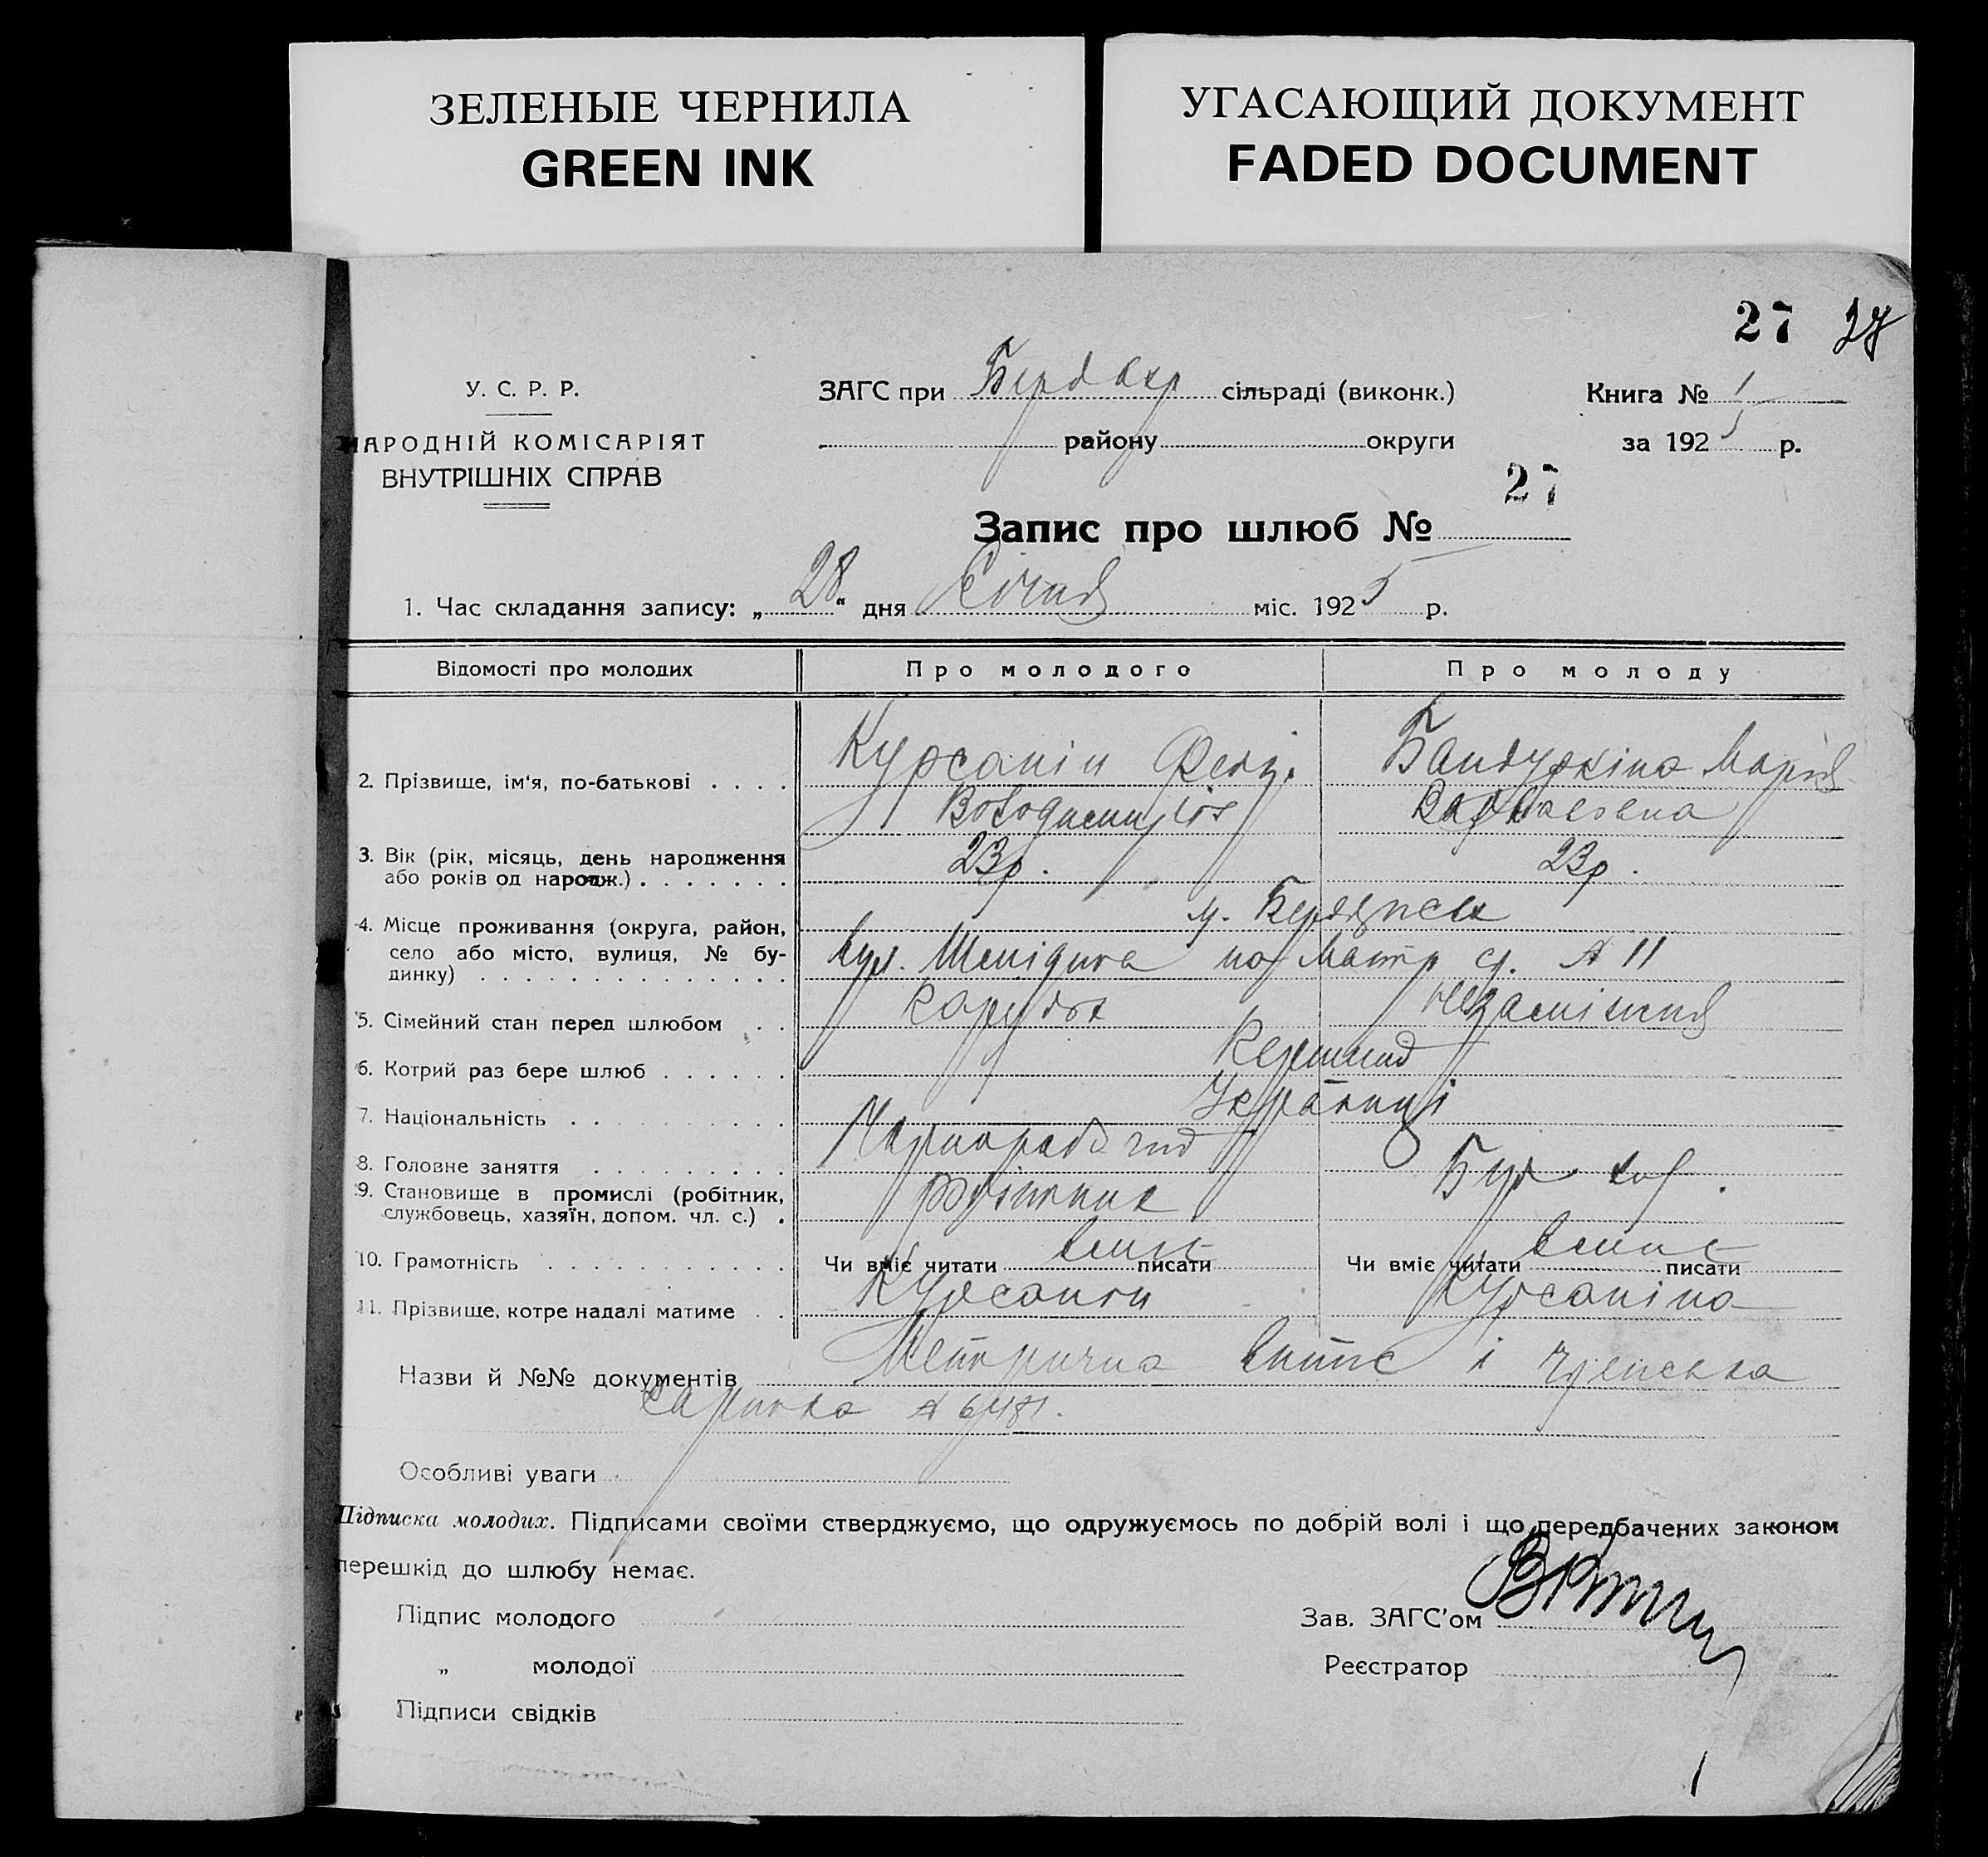 ЗЕЛЕНЫЕ ЧЕРНИЛА
GREEN INK
УГАСАЮЩИЙ ДОКУМЕНТ
FADED DOCUMENT
27
У. С. Р. Р.
НАРОДНІЙ КОМІСАРІЯТ
ВНУТРІШНІХ СПРАВ
ЗАГС при Берд сільраді (виконк.)
району округи
Книга № 1
за 1925 р.
27
Запис про шлюб №
1. Час складання запису: „28“ дня Січня міс. 1925 р.
Відомості про молодих Про молодого Про молоду
2. Прізвище, ім'я, по-батькові Курсанін Бандуркіна Марія
Володимиріов
3. Вік (рік, місяць, день народження 23р. 23р.
або років од народж.)
4. Місце проживання (округа, район, м. Бердянськ
село або місто, вулиця, № бу- вул. № 11
динку)
5. Сімейний стан перед шлюбом
6. Котрий раз бере шлюб
7. Національність Українці
8. Головне заняття
9. Становище в промислі (робітник, робітник
службовець, хазяїн, допом. чл. с.)
10. Грамотність Чи вміє читати вміє писати Чи вміє читати вміє писати
11. Прізвище, котре надалі матиме Курсанін Курсаніна
Назви й №№ документів Метрична випис і членська
карточка № 6481.
Особливі уваги
Підписка молодих. Підписами своїми стверджуємо, що одружуємось по добрій волі і що передбачених законом
перешкід до шлюбу немає.
Підпис молодого
Зав. ЗАГС'ом
„ молодої
Реєстратор
Підписи свідків
1